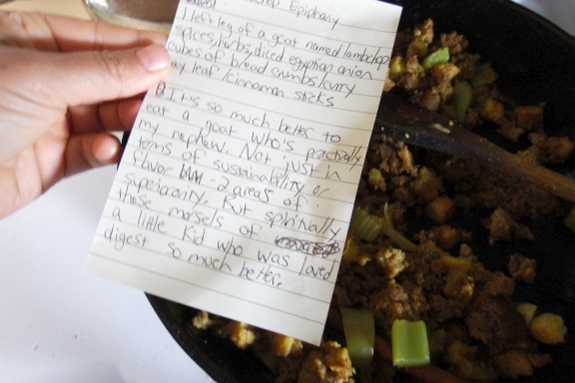 Epiphany
1 left leg of a goat named lambchop
spices, herbs, diced egyptian onion
cubes of bread crumbs / curry
ay leaf / cinnamon sticks
It's so much better to
eat a goat who's practically
my nephew. Not just in
terms of sustainability or
flavor - 2 areas of
superiority. But spiritually
those morsels of
a little kid who was loved
digest so much better.